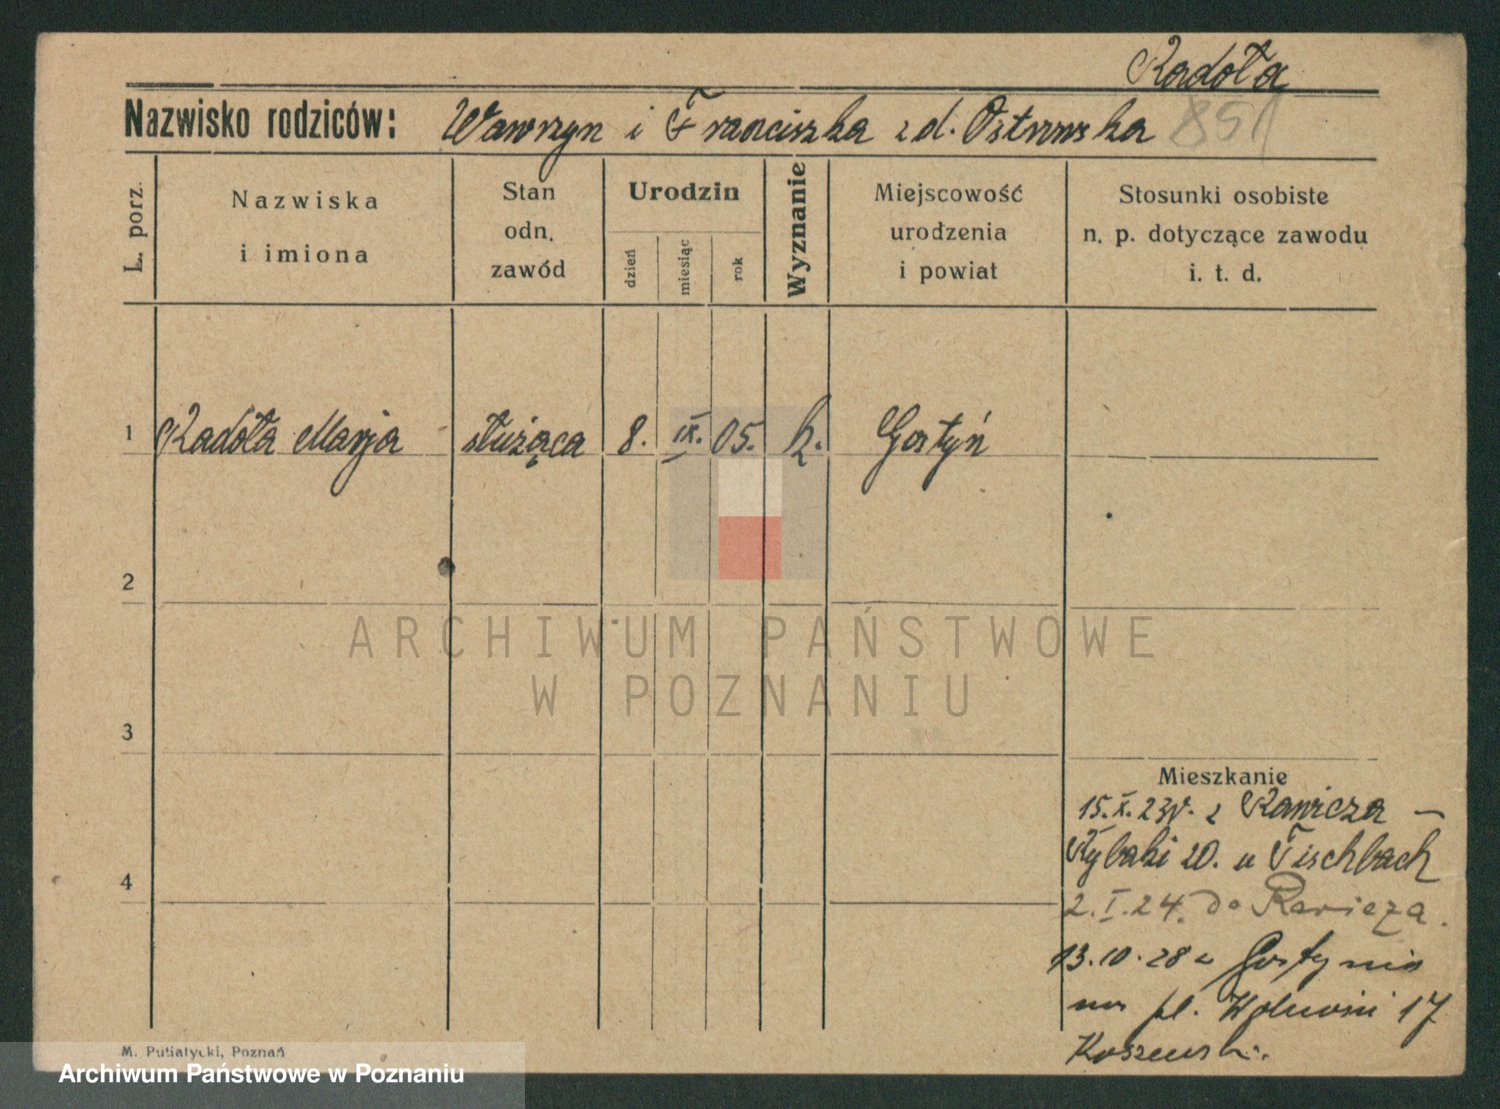 Radoła
Nazwisko rodziców: Wawrzyn i Franciszka z d. Ostrowska 851
L. porz.
Nazwiska
i imiona
Stan
odn.
zawód
Urodzin
dzień
miesiąc
rok
Wyznanie
Miejscowość
urodzenia
i powiat
Stosunki osobiste
n. p. dotyczące zawodu
i. t. d.
1 Radoła Marja służąca 8. IX. 05. k. Gostyń
2
ARCHIWUM PAŃSTWOWE
W POZNANIU
3
Mieszkanie
15.X.23r. z Rawicza —
Rybaki 20. u Fischbach
4
2.I.24. do Rawicza.
13.10.28 z Gostynia
na pl. Wolności 17
M. Putiatycki, Poznań
Archiwum Państwowe w Poznaniu